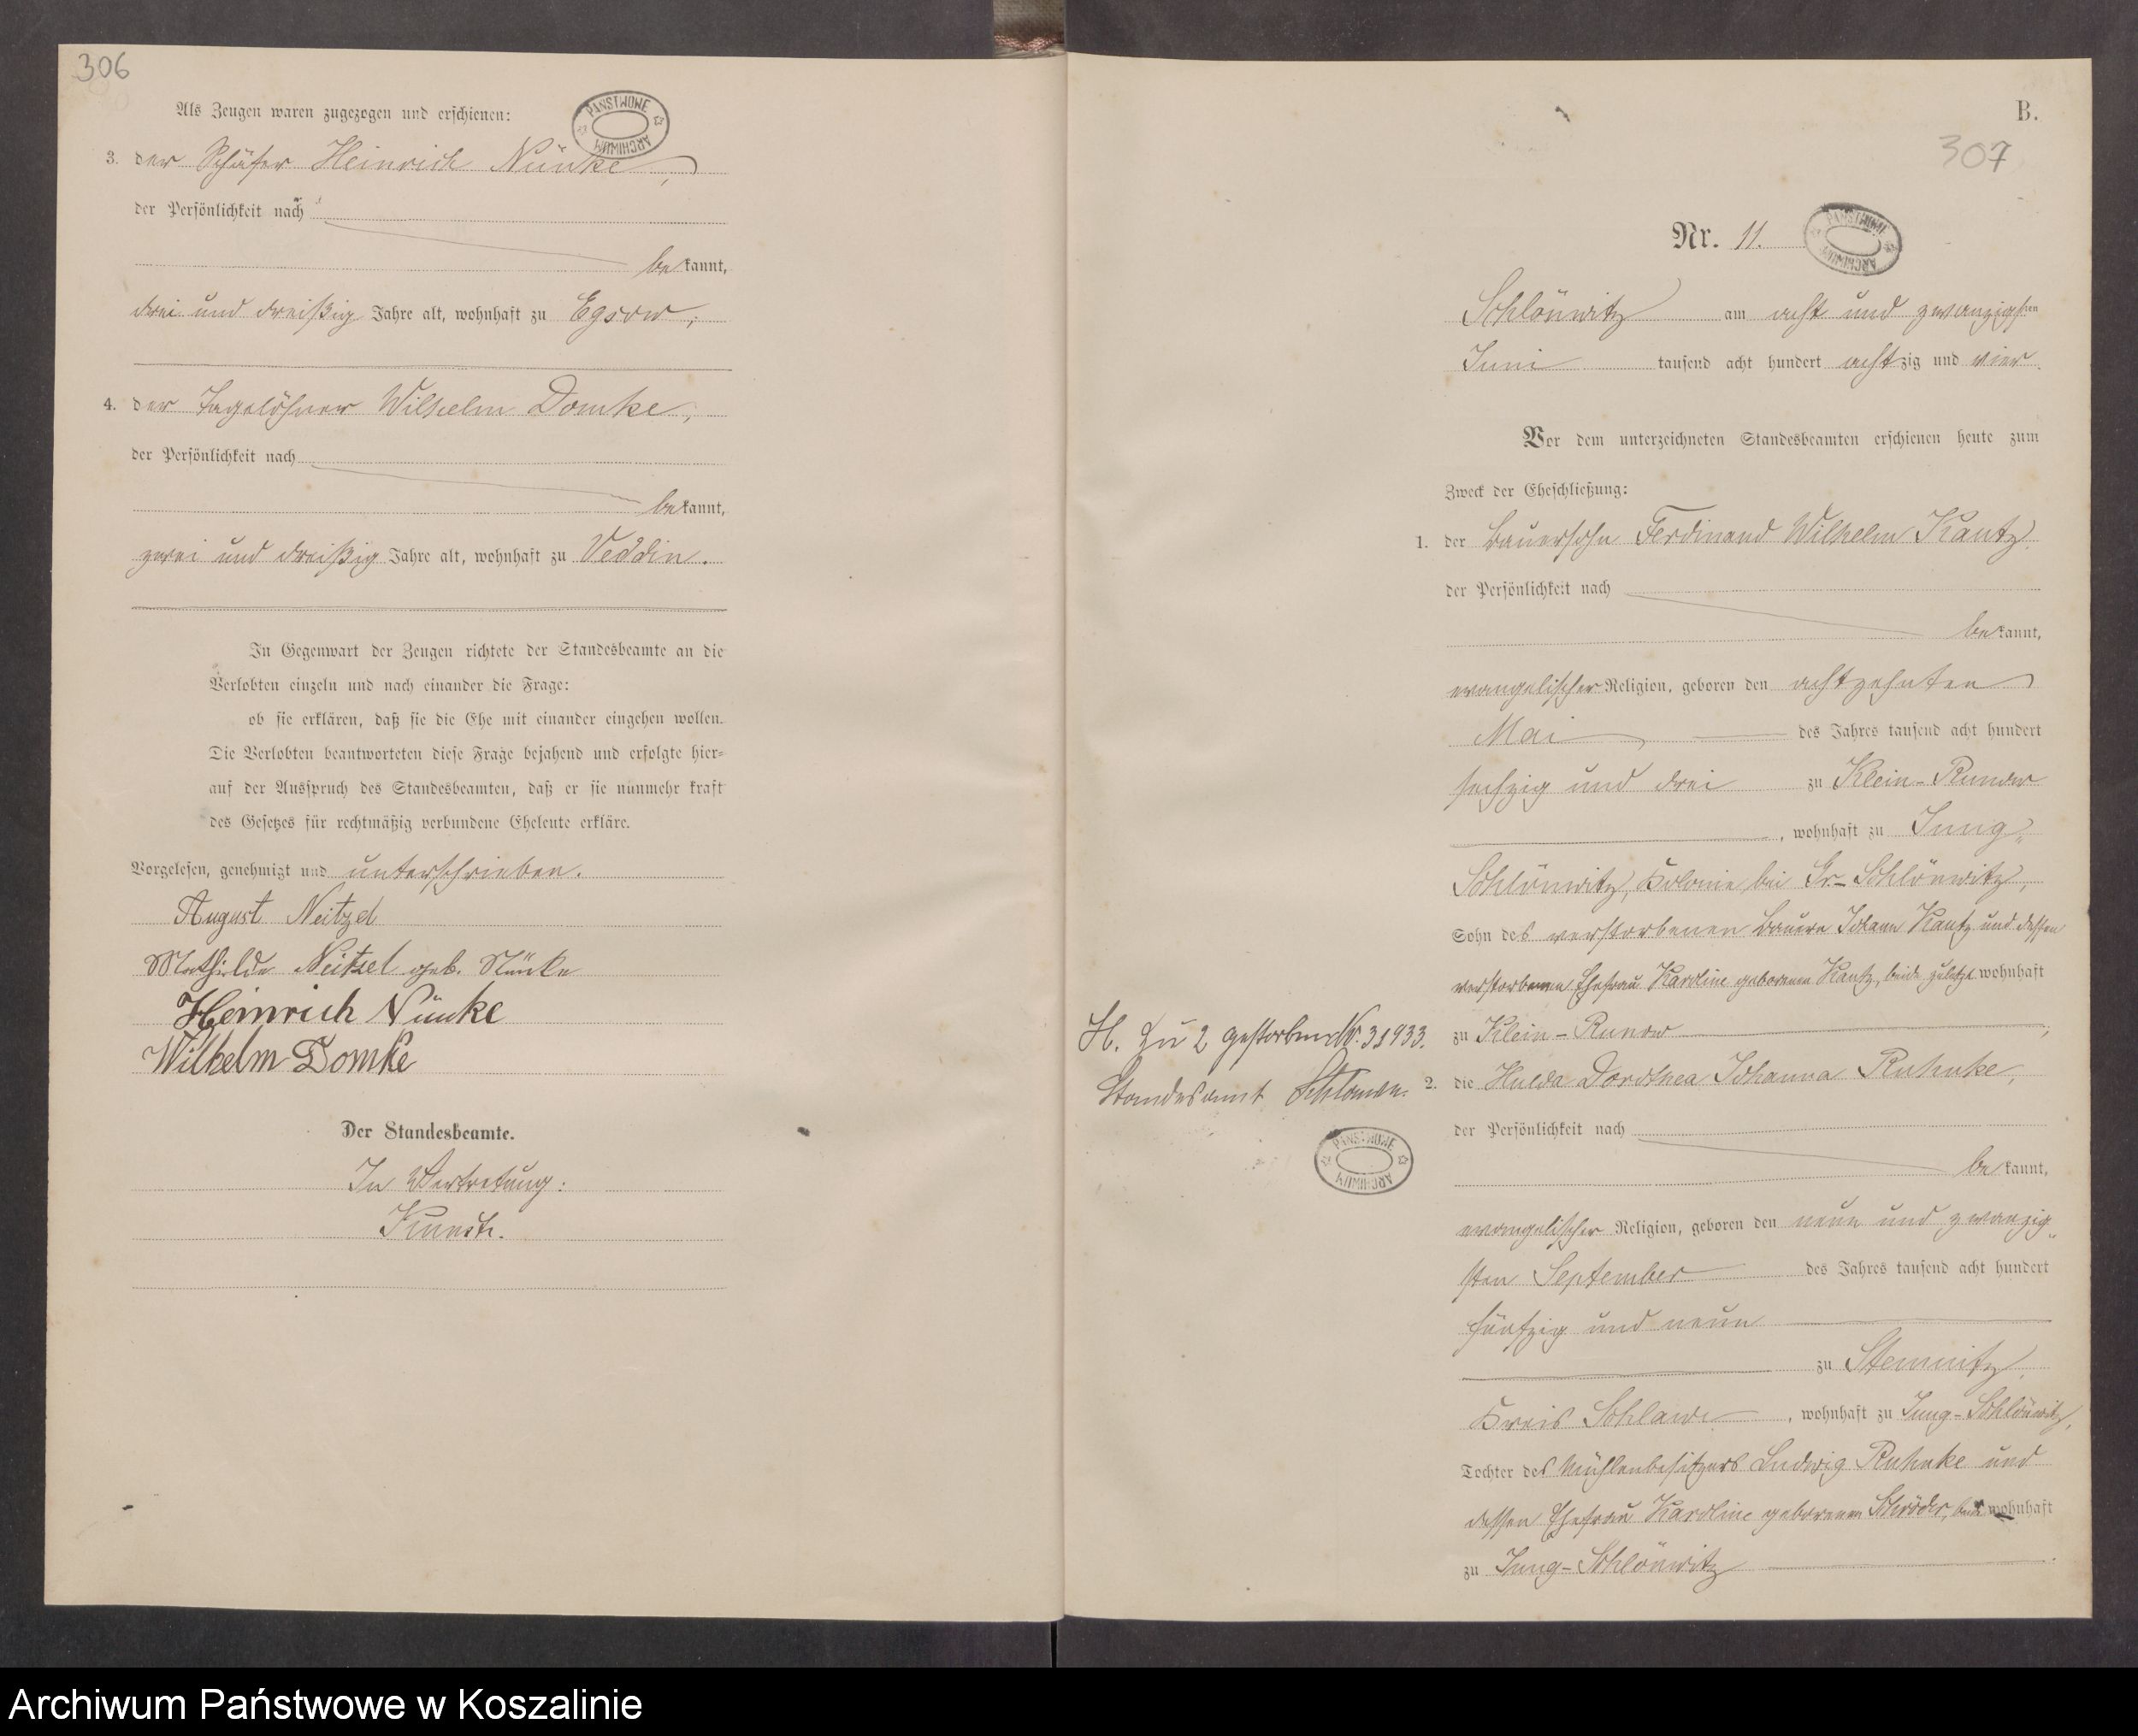 306
Als Zeugen waren zugezogen und erschienen:
PAŃSTWOWE ARCHIWUM
3. der Schäfer Heinrich Nünke,
der Persönlichkeit nach
bekannt,
drei und dreißig Jahre alt, wohnhaft zu Egsow;
4. der Tagelöhner Wilhelm Domke,
der Persönlichkeit nach
bekannt,
zwei und dreißig Jahre alt, wohnhaft zu Veddin.
In Gegenwart der Zeugen richtete der Standesbeamte an die
Verlobten einzeln und nach einander die Frage:
ob sie erklären, daß sie die Ehe mit einander eingehen wollen.
Die Verlobten beantworteten diese Frage bejahend und erfolgte hier=
auf der Ausspruch des Standesbeamten, daß er sie nunmehr kraft
des Gesetzes für rechtmäßig verbundene Eheleute erkläre.
Vorgelesen, genehmigt und unterschrieben.
August Neitzel
Mathilde Neitzel geb. Nünke
Heinrich Nünke
Wilhelm Domke
Der Standesbeamte.
In Vertretung:
B.
307
Nr. 11.
PAŃSTWOWE ARCHIWUM
Schlönwitz am acht und zwanzigsten
Juni tausend acht hundert achtzig und vier.
Vor dem unterzeichneten Standesbeamten erschienen heute zum
Zweck der Eheschließung:
1. der Bauersohn Ferdinand Wilhelm Kautz,
der Persönlichkeit nach
bekannt,
evangelischer Religion, geboren den achtzehnten
Mai des Jahres tausend acht hundert
sechzig und drei zu Klein-Runow
, wohnhaft zu Jung-
Schlönwitz, Kolonie bei Gr-Schlönwitz,
Sohn des verstorbenen Bauern Johann Kautz und dessen
verstorbenen Ehefrau Karoline geborenen Kautz, beide zuletzt wohnhaft
zu Klein-Runow
H. Zu 2 gestorben Nr. 3 1933.
Standesamt
PAŃSTWOWE ARCHIWUM
2. die Hulda Dorothea Johanna Ruhnke,
der Persönlichkeit nach
bekannt,
evangelischer Religion, geboren den neun und zwanzig-
sten September des Jahres tausend acht hundert
fünfzig und neun
zu Stemnitz,
Kreis Schlawe, wohnhaft zu Jung-Schlönwitz,
Tochter des Mühlenbesitzers Ludwig Ruhnke und
dessen Ehefrau Karoline geborenen Schröder, beide wohnhaft
zu Jung-Schlönwitz
Archiwum Państwowe w Koszalinie